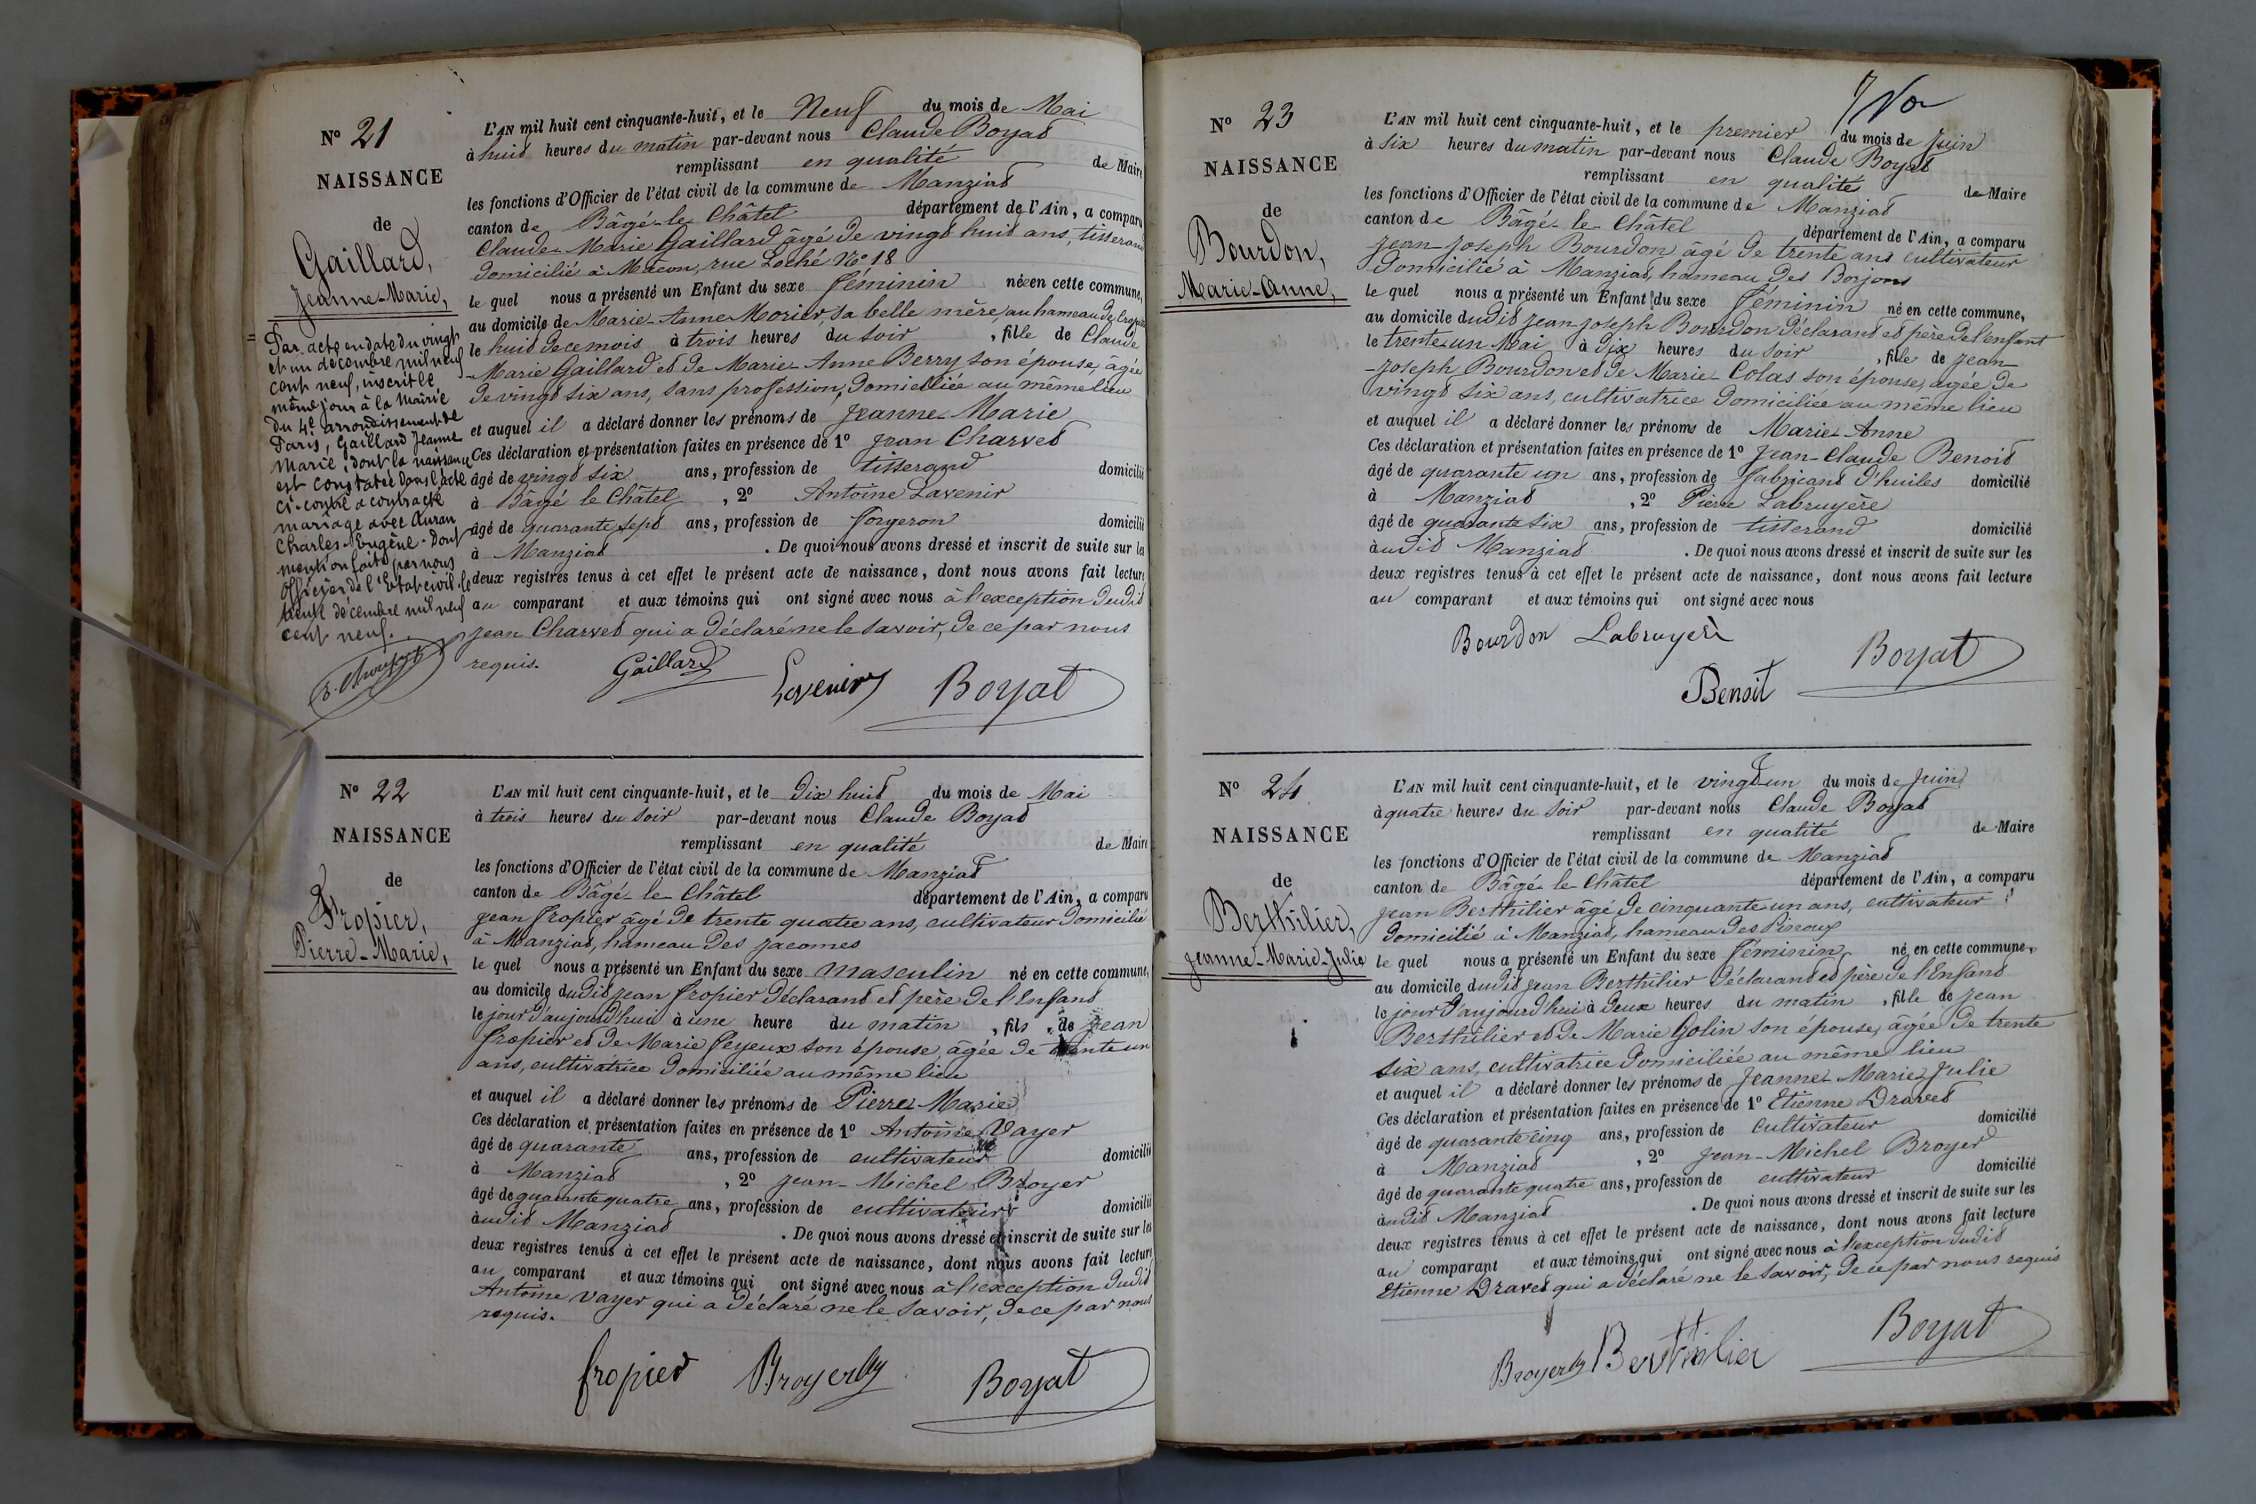 N° 21
NAISSANCE
de
Gaillard,
Jeanne-Marie,
Par acte en date du vingt
et un décembre mil neuf
cent neuf, inscrit le
même jour à la Mairie
du 4e arrondissement de
Paris, Gaillard Jeanne
Marie, dont la naissance
est constatée dans l'acte
ci-contre a contracté
mariage avec Auran
Charles-Eugène. Dont
mention faite par nous
officier de l'Etat civil le
décembre mil neuf
cent neuf.
L'AN mil huit cent cinquante-huit, et le Neuf du mois de Mai
à huit heures du matin par-devant nous Claude Boyat
remplissant en qualité de Maire
les fonctions d'Officier de l'état civil de la commune de Manziat
canton de Bâgé-le-Châtel département de l'Ain, a comparu
Claude-Marie Gaillard âgé de vingt huit ans, tisserand
domicilié à Mâcon, rue Loché N° 18
le quel nous a présenté un Enfant du sexe féminin née en cette commune,
au domicile de Marie-Anne Morier, sa belle mère, au hameau de
le huit de ce mois à trois heures du soir, fille de Claude
-Marie Gaillard et de Marie-Anne Berry son épouse, âgée
de vingt six ans, sans profession, domiciliée au même lieu
et auquel il a déclaré donner les prénoms de Jeanne-Marie
Ces déclaration et présentation faites en présence de 1° Jean Charvet
âgé de vingt six ans, profession de tisserand domicilié
à Bâgé le Châtel, 2° Antoine Lavenir
âgé de quarante sept ans, profession de forgeron domicilié
à Manziat. De quoi nous avons dressé et inscrit de suite sur les
deux registres tenus à cet effet le présent acte de naissance, dont nous avons fait lecture
au comparant et aux témoins qui ont signé avec nous à l'exception dudit
Jean Charvet qui a déclaré ne le savoir, de ce par nous
requis.
Gaillard Lavenir Boyat
N° 22
NAISSANCE
de
Fropier,
Pierre-Marie,
L'AN mil huit cent cinquante-huit, et le dix huit du mois de Mai
à trois heures du soir par-devant nous Claude Boyat
remplissant en qualité de Maire
les fonctions d'Officier de l'état civil de la commune de Manziat
canton de Bâgé-le-Châtel département de l'Ain, a comparu
Jean fropier âgé de trente quatre ans, cultivateur domicilié
à Manziat, hameau des Jacomes
le quel nous a présenté un Enfant du sexe masculin né en cette commune,
au domicile dudit Jean fropier déclarant et père de l'Enfant
le jour d'aujourd'hui à une heure du matin, fils de Jean
fropier et de Marie feyeux son épouse, âgée de trente un
ans, cultivatrice domiciliée au même lieu
et auquel il a déclaré donner les prénoms de Pierre-Marie
Ces déclaration et présentation faites en présence de 1° Antoine Vayer
âgé de quarante ans, profession de cultivateur domicilié
à Manziat, 2° Jean-Michel Broyer
âgé de quarante quatre ans, profession de cultivateur domicilié
audit Manziat. De quoi nous avons dressé et inscrit de suite sur les
deux registres tenus à cet effet le présent acte de naissance, dont nous avons fait lecture
au comparant et aux témoins qui ont signé avec nous à l'exception dudit
Antoine Vayer qui a déclaré ne le savoir, de ce par nous
requis.
fropier Broyer Boyat
N° 23
NAISSANCE
de
Bourdon,
Marie-Anne,
L'AN mil huit cent cinquante-huit, et le premier du mois de Juin
à six heures du matin par-devant nous Claude Boyat
remplissant en qualité de Maire
les fonctions d'Officier de l'état civil de la commune de Manziat
canton de Bâgé-le-Châtel département de l'Ain, a comparu
Jean-Joseph Bourdon âgé de trente ans cultivateur
domicilié à Manziat, hameau des Borjons
le quel nous a présenté un Enfant du sexe féminin né en cette commune,
au domicile dudit Jean-Joseph Bourdon déclarant et père de l'enfant
le trente un Mai à dix heures du soir, fille de Jean-
-Joseph Bourdon et de Marie-Colas son épouse, âgée de
vingt six ans, cultivatrice domiciliée au même lieu
et auquel il a déclaré donner les prénoms de Marie-Anne
Ces déclaration et présentation faites en présence de 1° Jean-Claude Benoit
âgé de quarante un ans, profession de fabricant d'huiles domicilié
à Manziat, 2° Pierre Labruyère
âgé de quarante six ans, profession de tisserand domicilié
audit Manziat. De quoi nous avons dressé et inscrit de suite sur les
deux registres tenus à cet effet le présent acte de naissance, dont nous avons fait lecture
au comparant et aux témoins qui ont signé avec nous
Bourdon Labruyère Boyat
Benoit
N° 24
NAISSANCE
de
Berthilier,
Jeanne-Marie-Julie
L'AN mil huit cent cinquante-huit, et le vingt un du mois de Juin
à quatre heures du soir par-devant nous Claude Boyat
remplissant en qualité de Maire
les fonctions d'Officier de l'état civil de la commune de Manziat
canton de Bâgé-le-Châtel département de l'Ain, a comparu
Jean Berthilier âgé de cinquante un ans, cultivateur
domicilié à Manziat, hameau des Pinoux
le quel nous a présenté un Enfant du sexe féminin né en cette commune,
au domicile dudit Jean Berthilier déclarant et père de l'Enfant
le jour d'aujourd'hui à deux heures du matin, fille de Jean
Berthilier et de Marie Golin son épouse, âgée de trente
six ans, cultivatrice domiciliée au même lieu
et auquel il a déclaré donner les prénoms de Jeanne-Marie-Julie
Ces déclaration et présentation faites en présence de 1° Etienne Dravet
âgé de quarante cinq ans, profession de cultivateur domicilié
à Manziat, 2° Jean-Michel Broyer
âgé de quarante quatre ans, profession de cultivateur domicilié
audit Manziat. De quoi nous avons dressé et inscrit de suite sur les
deux registres tenus à cet effet le présent acte de naissance, dont nous avons fait lecture
au comparant et aux témoins qui ont signé avec nous à l'exception dudit
Etienne Dravet qui a déclaré ne le savoir, de ce par nous requis
Broyer Berthilier Boyat